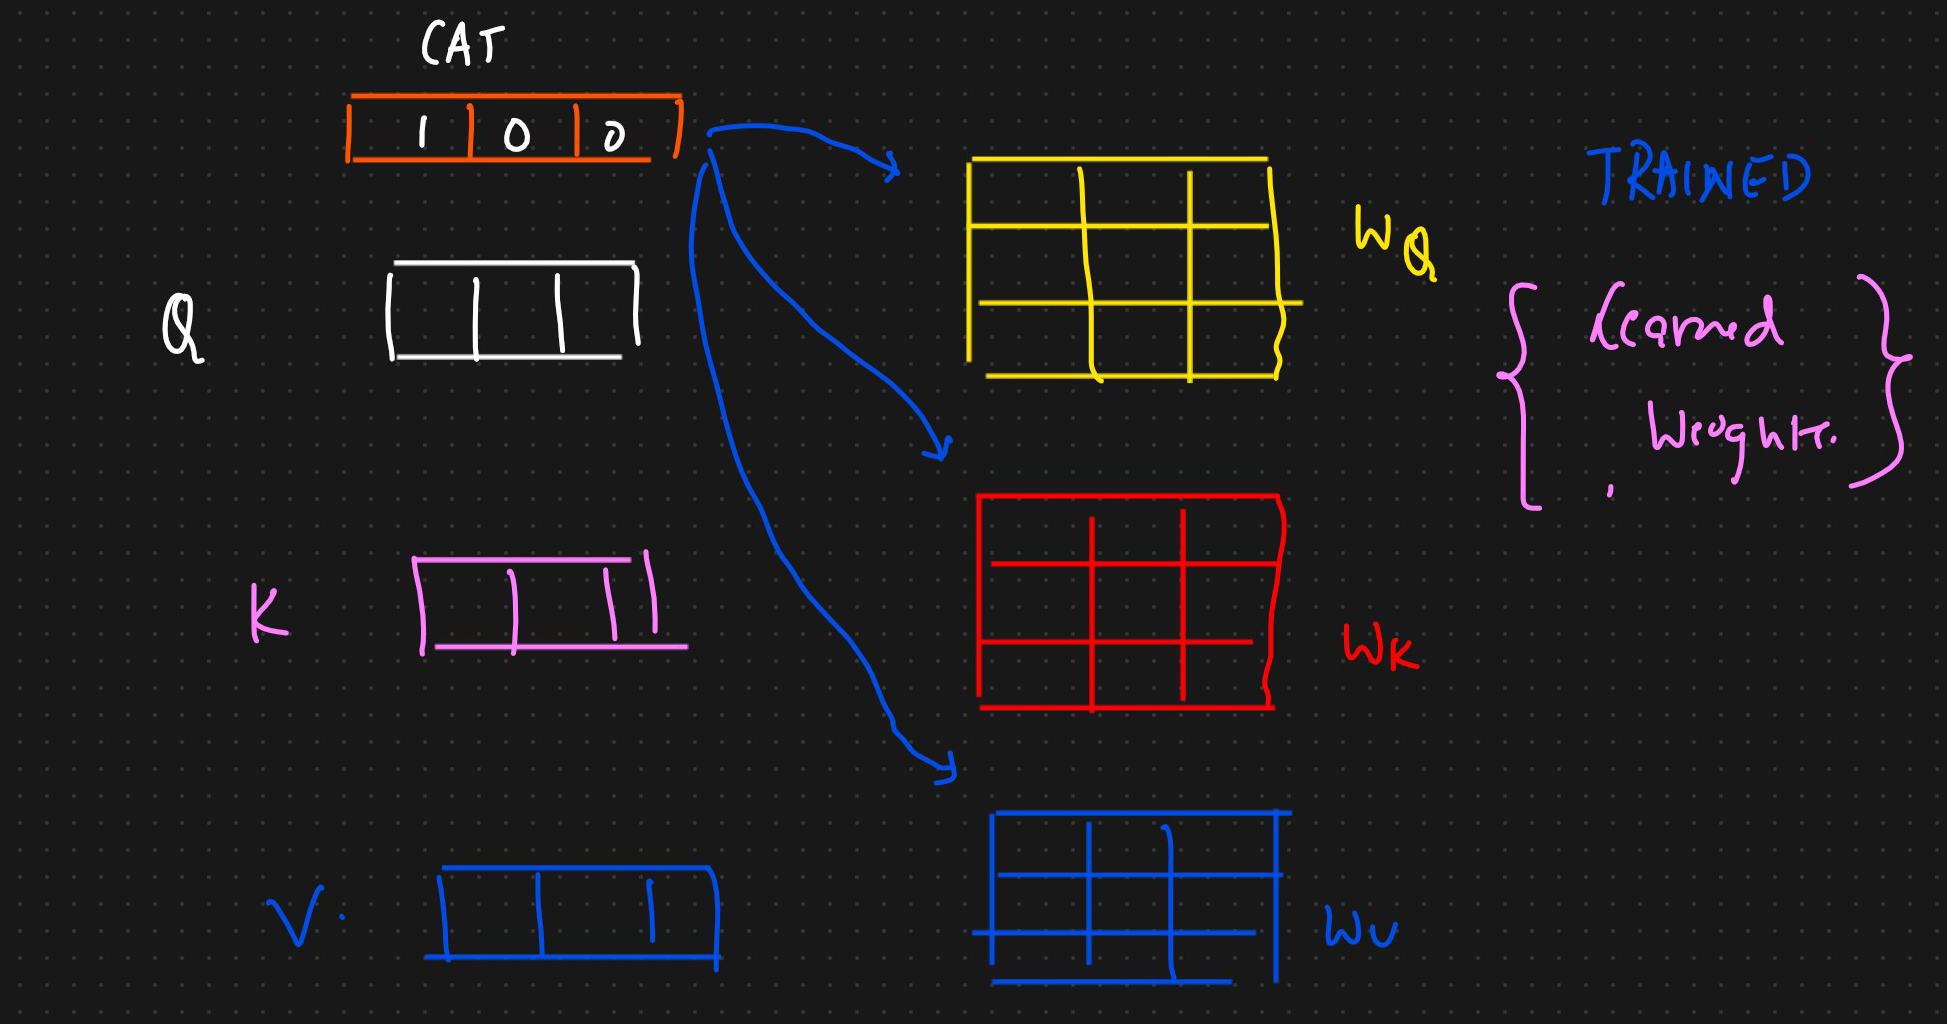 CAT
1 0 0
Q
K
V.
WQ
WK
WV
TRAINED
{ Learned
Weights. }